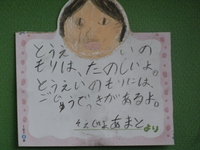 とうえいの
もりは、たのしいよ。
とうえいのもりには、
ごじゅうでっきがあるよ。
あまとより